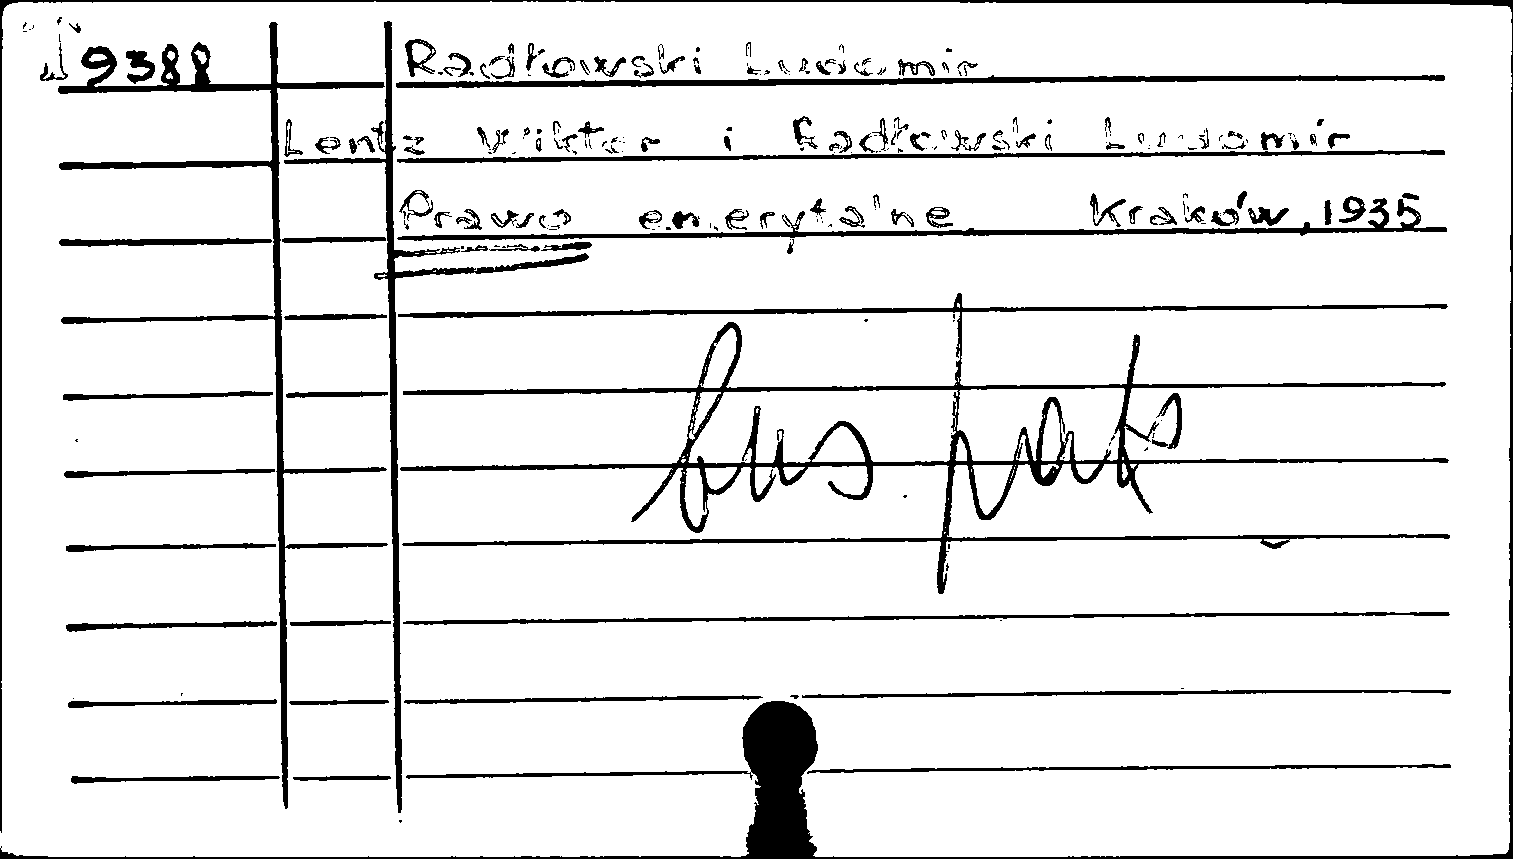 I 9388 Radłowski Ludomir
Lentz Wiktor i Radłowski Ludomir
Prawo emerytalne. Kraków, 1935